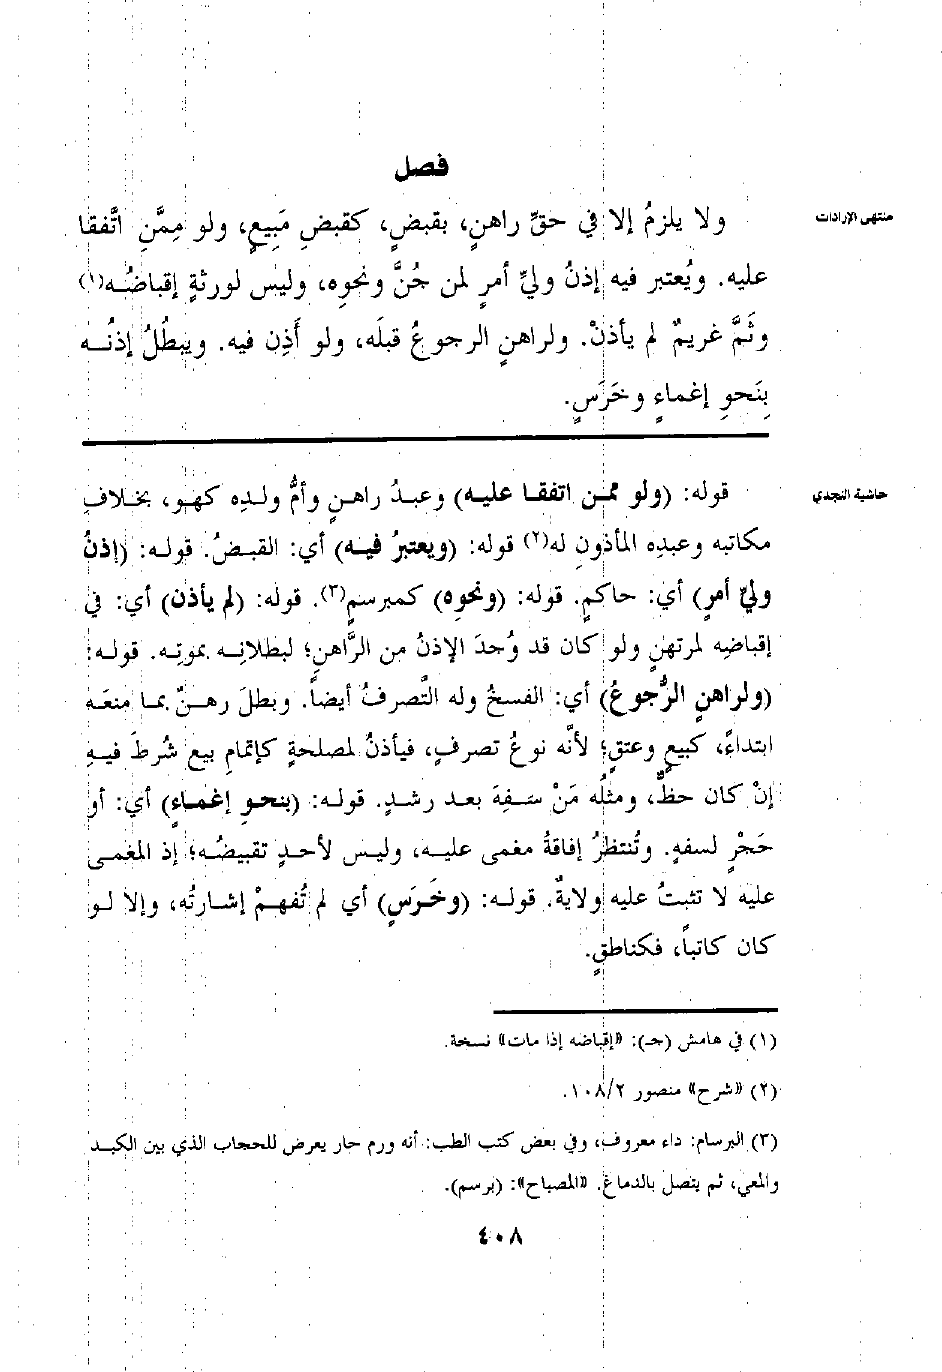 فصل
منتهى الإرادات
ولا يلزمُ إلا في حقِّ راهنٍ، بقبضٍ، كقبضِ مَبِيعٍ، ولو مِمَّنِ اتَّفقا
عليه. ويُعتبر فيه إذنُ وليِّ أمرٍ لمن جُنَّ ونحوِه، وليس لورثةٍ إقباضُه(١)
وثَمَّ غريمٌ لم يأذنْ. ولراهنٍ الرجوعُ قبلَه، ولو أَذِن فيه. ويبطُلُ إذنُه
بِنَحوِ إغماءٍ وخَرَسٍ.
حاشية النجدي
قوله: (ولو ممن اتفقا عليه) وعبدُ راهنٍ وأمُّ ولدِه كهو، بخلافِ
مكاتبه وعبدِه المأذونِ له(٢) قوله: (ويعتبرُ فيه) أي: القبضُ. قوله: (إذنُ
وليِّ أمرٍ) أي: حاكمٍ. قوله: (ونحوِه) كمبرسمٍ(٣). قوله: (لم يأذن) أي: في
إقباضِه لمرتهنٍ ولو كان قد وُجدَ الإذنُ من الرَّاهنِ؛ لبطلانِه بموتِه. قوله:
(ولراهنٍ الرُّجوعُ) أي: الفسخُ وله التَّصرفُ أيضاً. وبطلَ رهنٌ بما منعَه
ابتداءً، كبيعٍ وعتقٍ؛ لأنَّه نوعُ تصرفٍ، فيأذنُ لمصلحةٍ كإتمامِ بيع شُرطَ فيهِ
إنْ كان حظٌّ، ومثلُه مَنْ سَفِهَ بعد رشدٍ. قوله: (بنحوِ إغماءٍ) أي: أو
حَجْرٍ لسفهٍ. وتُنتظرُ إفاقةُ مغمى عليه، وليس لأحدٍ تقبيضُه؛ إذ المغمى
عليه لا تثبتُ عليه ولايةٌ. قوله: (وخَرَسٍ) أي لم تُفهمْ إشارتُه، وإلا لو
كان كاتباً، فكناطقٍ.
(١) في هامش (جـ): «إقباضه إذا مات» نسخة.
(٢) «شرح» منصور ١٠٨/٢.
(٣) البرسام: داء معروف، وفي بعض كتب الطب: أنه ورم حار يعرض للحجاب الذي بين الكبد
والمعي، ثم يتصل بالدماغ. «المصباح»: (برسم).
٤٠٨